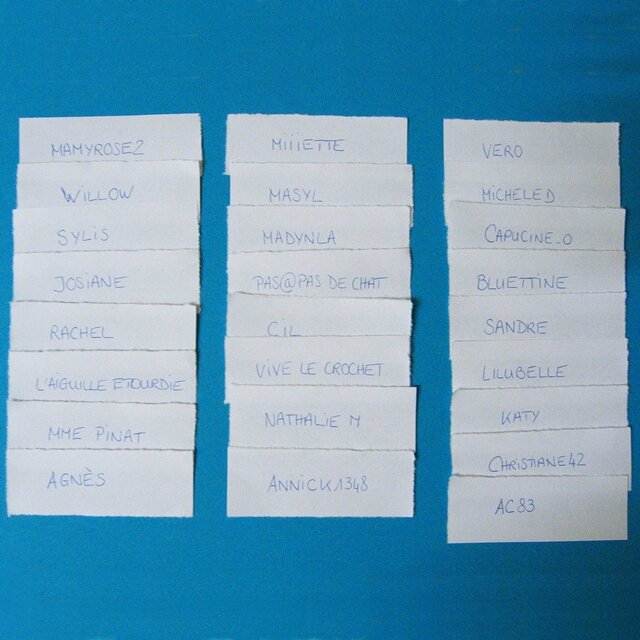 MAMYROSE2
WILLOW
SYLIS
JOSIANE
RACHEL
L'AIGUILLE ETOURDIE
MME PINAT
AGNÈS
MIIIETTE
MASYL
MADYNLA
PAS@PAS DE CHAT
CIL
VIVE LE CROCHET
NATHALIE M
ANNICK1348
VERO
MICHELE D
CAPUCINE_O
BLUETTINE
SANDRE
LILUBELLE
KATY
CHRISTIANE42
AC83